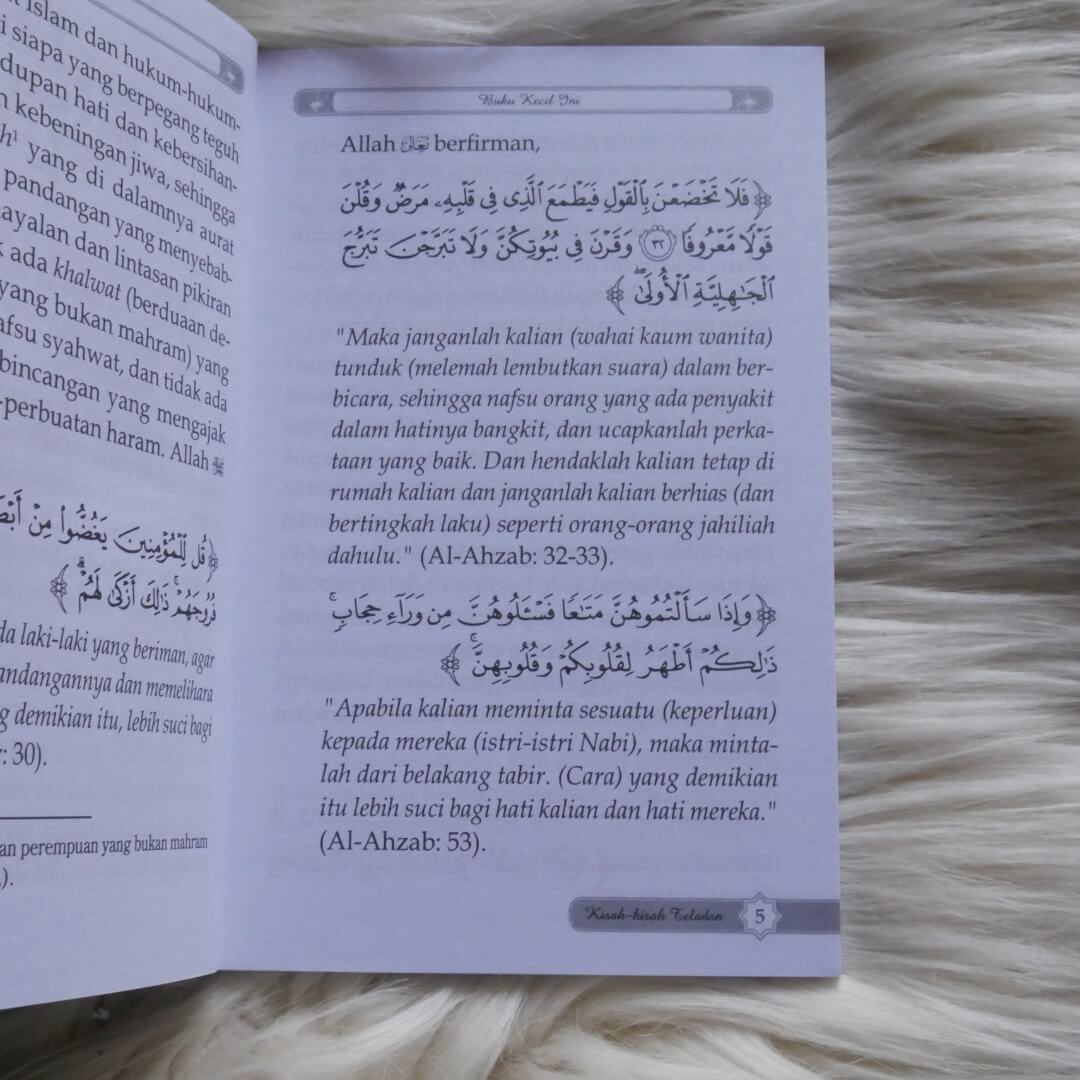 Islam dan hukum-hukum-
siapa yang berpegang teguh
dupan hati dan kebersihan-
kebeningan jiwa, sehingga
yang di dalamnya aurat
pandangan yang menyebab-
ayalan dan lintasan pikiran
ada khalwat (berduaan de-
yang bukan mahram) yang
afsu syahwat, dan tidak ada
bincangan yang mengajak
-perbuatan haram. Allah ﷻ
﴿قُل لِّلْمُؤْمِنِينَ يَغُضُّوا۟ مِنْ
فُرُوجَهُمْ ۚ ذَٰلِكَ أَزْكَىٰ لَهُمْ ۗ﴾
da laki-laki yang beriman, agar
andangannya dan memelihara
g demikian itu, lebih suci bagi
: 30).
an perempuan yang bukan mahram
).
Buku Kecil Ini
Allah تعالى berfirman,
﴿فَلَا تَخْضَعْنَ بِٱلْقَوْلِ فَيَطْمَعَ ٱلَّذِى فِى قَلْبِهِۦ مَرَضٌ وَقُلْنَ
قَوْلًا مَّعْرُوفًا ٣٢ وَقَرْنَ فِى بُيُوتِكُنَّ وَلَا تَبَرَّجْنَ تَبَرُّجَ
ٱلْجَٰهِلِيَّةِ ٱلْأُولَىٰ ۖ﴾
"Maka janganlah kalian (wahai kaum wanita)
tunduk (melemah lembutkan suara) dalam ber-
bicara, sehingga nafsu orang yang ada penyakit
dalam hatinya bangkit, dan ucapkanlah perka-
taan yang baik. Dan hendaklah kalian tetap di
rumah kalian dan janganlah kalian berhias (dan
bertingkah laku) seperti orang-orang jahiliah
dahulu." (Al-Ahzab: 32-33).
﴿وَإِذَا سَأَلْتُمُوهُنَّ مَتَٰعًا فَسْـَٔلُوهُنَّ مِن وَرَآءِ حِجَابٍ ۚ
ذَٰلِكُمْ أَطْهَرُ لِقُلُوبِكُمْ وَقُلُوبِهِنَّ ۚ﴾
"Apabila kalian meminta sesuatu (keperluan)
kepada mereka (istri-istri Nabi), maka minta-
lah dari belakang tabir. (Cara) yang demikian
itu lebih suci bagi hati kalian dan hati mereka."
(Al-Ahzab: 53).
Kisah-kisah Teladan 5